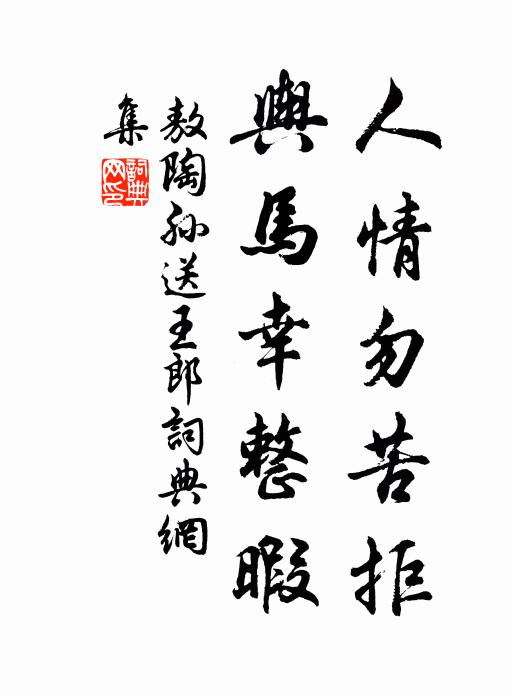 人情勿苦拒
輿馬幸整暇
敖陶孙送王郎詞典網
集
詞典網印